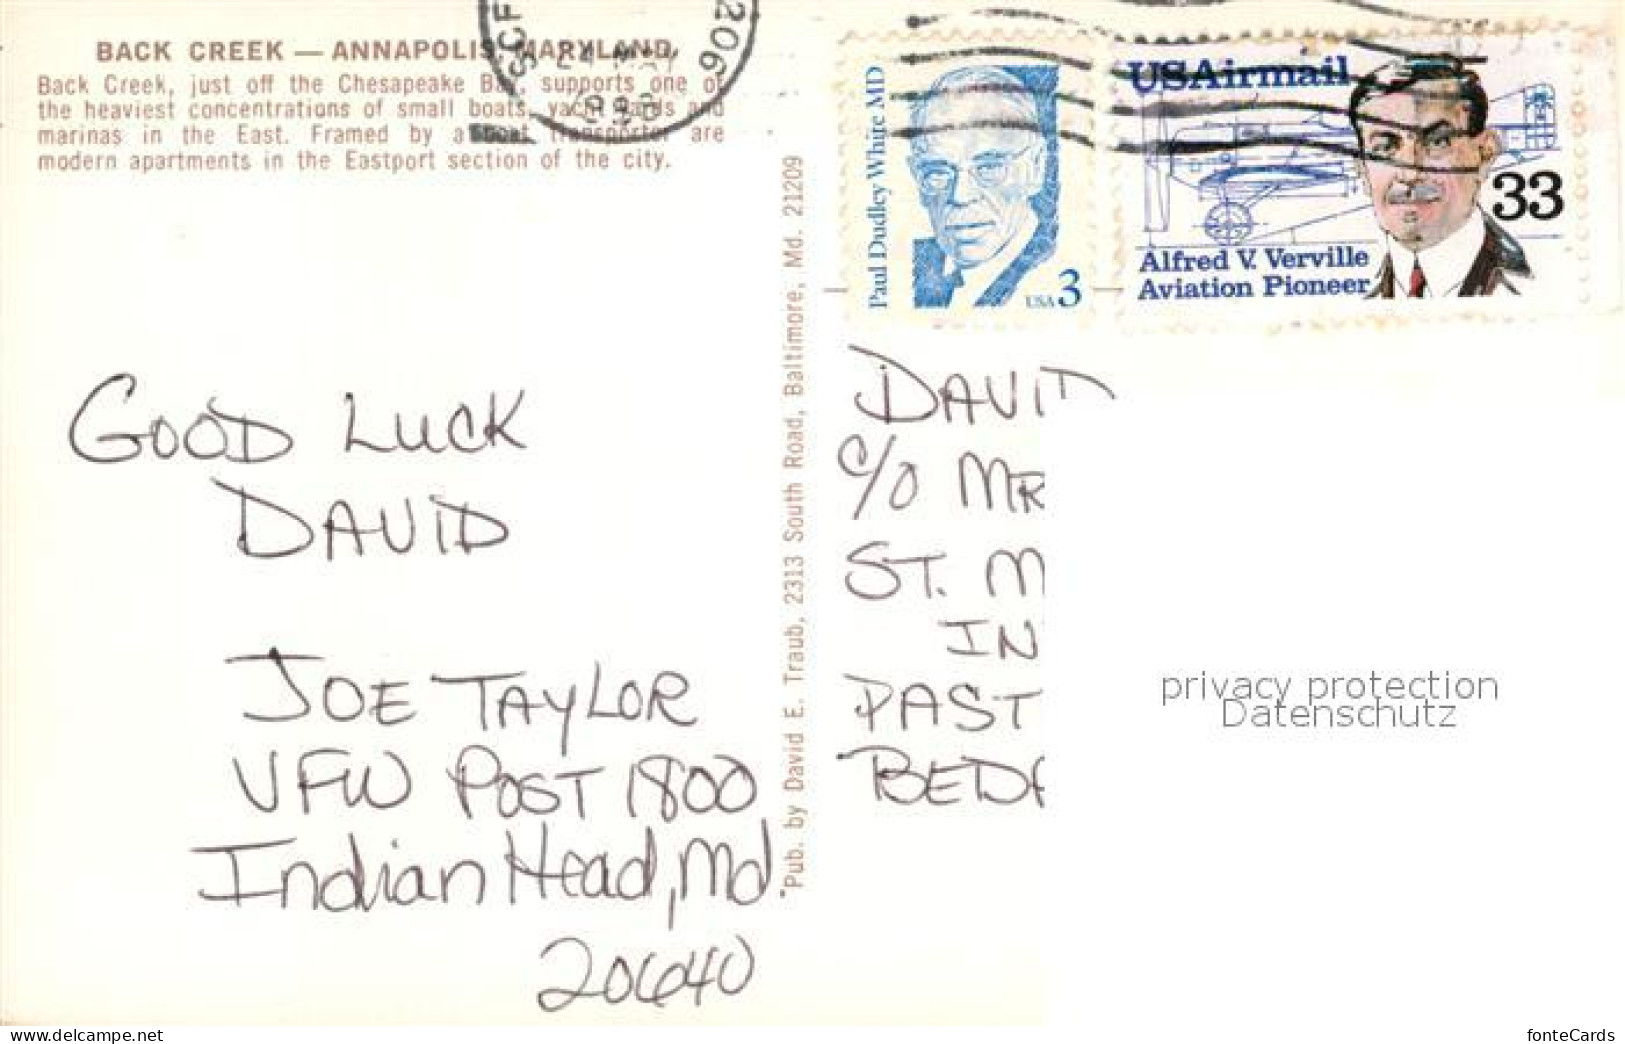 BACK CREEK — ANNAPOLIS, MARYLAND
Back Creek, just off the Chesapeake Bay, supports one of
the heaviest concentrations of small boats, yacht yards and
marinas in the East. Framed by a boat transporter are
modern apartments in the Eastport section of the city.
SCF
24 MAY
206
USAirmail
33
Alfred V. Verville
Aviation Pioneer
Paul Dudley White MD
USA 3
Pub. by David E. Traub, 2313 South Road, Baltimore, Md. 21209
GOOD LUCK
DAVID
JOE TAYLOR
VFW POST 1800
Indian Head, Md.
20640
DAVID
c/o MR
ST. M
IN
PAST
BEDA
privacy protection
Datenschutz
www.delcampe.net
fonteCards